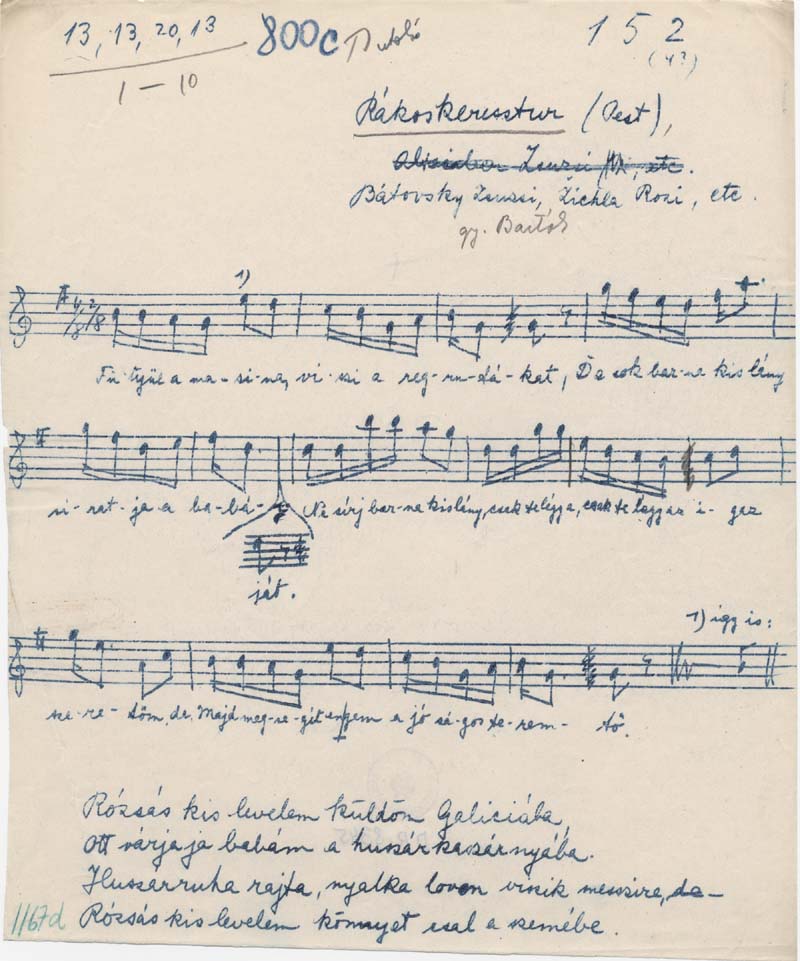 13, 13, 20, 13
800c
1 5 2
(43)
1 – 10
Rákoskeresztur (Pest),
Zsuzsi etc.
Bátovsky Zsuzsi, Zichla Rozi, etc.
gy. Bartók
1)
4/8 2/8
Fü-tyül a ma-si-na, vi-szi a reg-ru-dá-kat, De sok bar-na kis lány
si-rat-ja a ba-bá-
Ne sírj bar-na kis lány, csak te légy a, csak te légy az i-gaz
ját.
1) így is:
sze-re-tőm, de. Majd meg-se-gít engem a jó sá-gos te-rem-tő.
Rózsás kis levelem küldöm Galiciába,
Ott várja ja babám a huszárkaszárnyába.
Huszárruha rajta, nyalka lovon viszik messzire, de–
1167d Rózsás kis levelem könnyet csal a szemébe.